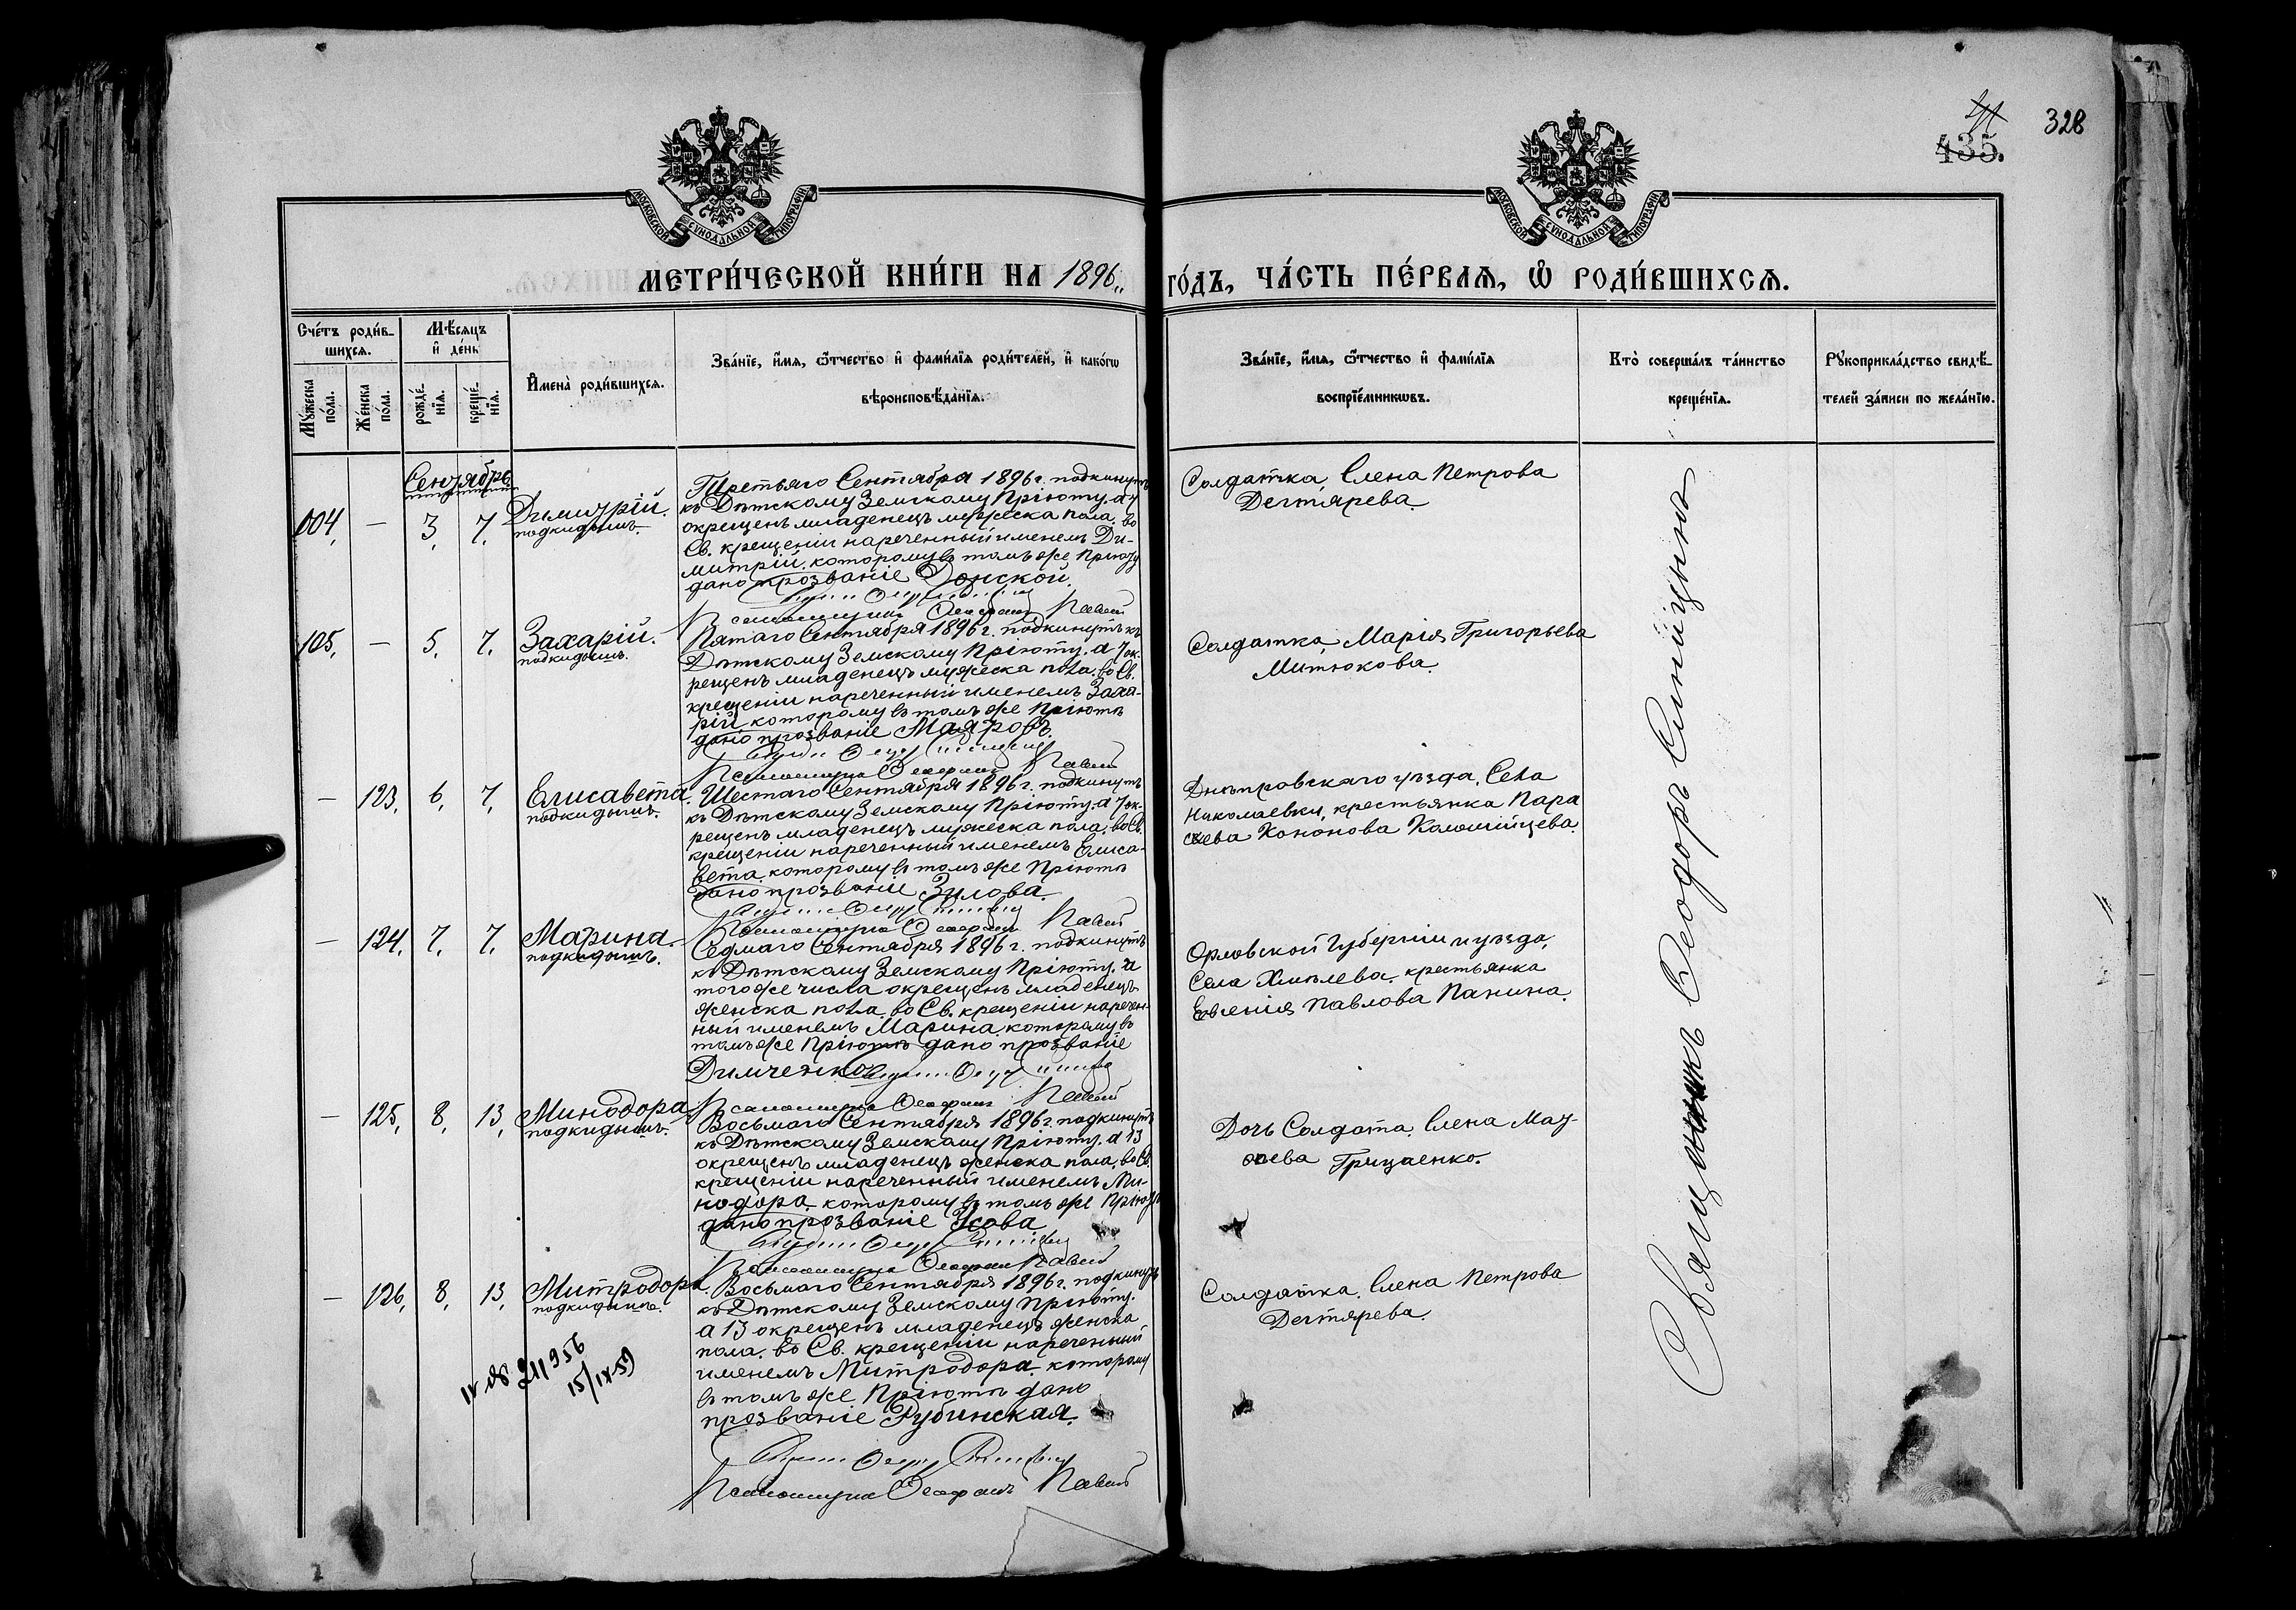 328
435.
МОСКОВСКОЙ СѴНОДАЛЬНОЙ ТИПОГРАФІИ
МОСКОВСКОЙ СѴНОДАЛЬНОЙ ТИПОГРАФІИ
МЕТРИ́ЧЕСКОЙ КНИ́ГИ НА 1896 ГО́ДЪ, ЧА́СТЬ ПЕ́РВАѦ, Ѡ҆ РОДИ́ВШИХСѦ.
Сче́тъ роди́в-
шихсѧ.
Мѣ́сѧцъ
и҆ де́нь
Мꙋ́жеска
по́ла.
Же́нска
по́ла.
рожде́-
нїѧ.
креще́-
нїѧ.
И҆мена̀ роди́вшихсѧ.
Зва́нїе, и҆́мѧ, ѻ҆́тчество и҆ фами́лїѧ роди́телей, и҆ како́гѡ
вѣроисповѣ́данїѧ.
Зва́нїе, и҆́мѧ, ѻ҆́тчество и҆ фами́лїѧ
воспрїе́мникѡвъ.
Кто̀ соверша́лъ та́инство
креще́нїѧ.
Рꙋкоприкла́дство свидѣ́-
телей за́писи по жела́нїю.
Сентябрь
004, — 3, 7, Димитрій.
подкидышъ.
Третьяго Сентября 1896 г. подкинутъ
къ Дѣтскому Земскому Пріюту, а 7
окрещенъ младенецъ мужеска пола, во
Св. крещеніи нареченный именемъ Ди-
митрій, которому въ томъ же Пріюту
дано прозваніе Донской.
Псаломщикъ Павелъ
Солдатка, Елена Петрова
Дегтярева.
105, — 5, 7, Захарій.
подкидышъ.
Пятаго Сентября 1896 г. подкинутъ къ
Дѣтскому Земскому Пріюту, а 7 ок-
рещенъ младенецъ мужеска пола, во Св.
крещеніи нареченный именемъ Заха-
рій которому въ томъ же Пріютѣ
дано прозваніе Маяровъ.
Псаломщикъ Павелъ
Солдатка, Марія Григорьева
Митюкова.
— 123, 6, 7, Елисавета.
подкидышъ.
Шестаго Сентября 1896 г. подкинутъ
къ Дѣтскому Земскому Пріюту, а 7 ок-
рещенъ младенецъ мужеска пола, во Св.
крещеніи нареченный именемъ Елиса-
вета, которому въ томъ же Пріютѣ
дано прозваніе Зилова.
Псаломщикъ Павелъ
Днѣпровскаго уѣзда, Села
Николаевки, крестьянка Пара
скева Кононова Коломійцева.
— 124, 7, 7, Марина.
подкидышъ.
Седмаго Сентября 1896 г. подкинутъ
къ Дѣтскому Земскому Пріюту, а
того же числа окрещенъ младенецъ
женска пола, во Св. крещеніи наречен-
ный именемъ Марина, которому въ
томъ же Пріютѣ дано прозваніе
Димченко.
Псаломщикъ Павелъ
Орловской Губерніи и уѣзда,
Села Хмѣлева, крестьянка
Евгенія Павлова Панина.
— 125, 8, 13, Минодора,
подкидышъ.
Восьмаго Сентября 1896 г. подкинутъ
къ Дѣтскому Земскому Пріюту, а 13
окрещенъ младенецъ женска пола, во Св.
крещеніи нареченный именемъ Ми-
нодора, которому въ томъ же Пріюту
дано прозваніе
Псаломщикъ Павелъ
Дочь Солдата, Елена Мат-
ѳеева Гриценко.
— 126, 8, 13, Митродора.
подкидышъ.
Восьмаго Сентября 1896 г. подкинутъ
къ Дѣтскому Земскому Пріюту,
а 13 окрещенъ младенецъ женска
пола, въ Св. крещеніи нареченный
именемъ Митродора, которому
въ томъ же Пріютѣ дано
прозваніе Рубинская.
Псаломщикъ Павелъ
Солдатка, Елена Петрова
Дегтярева.
211956
15/IX 59
Священникъ Ѳеодоръ Синицынъ